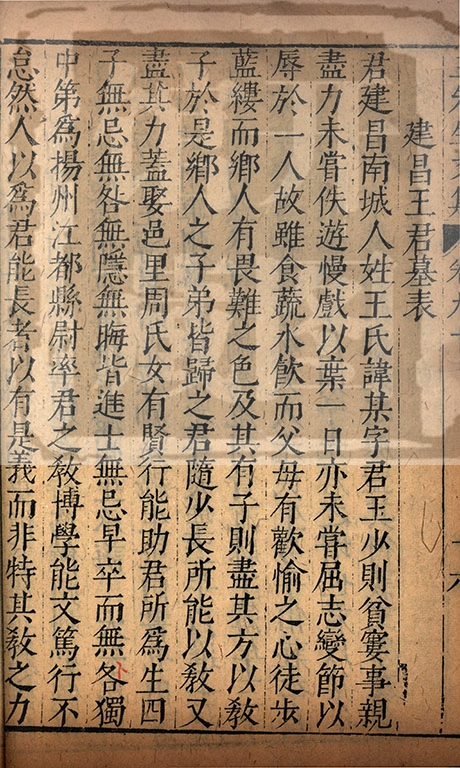 建昌王君墓表
君建昌南城人姓王氏諱某字君玉少則貧窶事親
盡力未甞佚遊慢戲以棄一日亦未甞屈志變節以
辱於一人故雖食蔬水飲而父母有歡愉之心徒步
藍縷而鄉人有畏難之色及其有子則盡其方以教
子於是鄉人之子弟皆歸之君隨少長所能以敎又
盡其力蓋娶邑里周氏女有賢行能助君所爲生四
子無忌無咎無隱無晦皆進士無忌早卒而無咎獨
中第爲揚州江都縣尉率君之敎博學能文篤行不
怠然人以爲君能長者以有是義而非特其敎之力